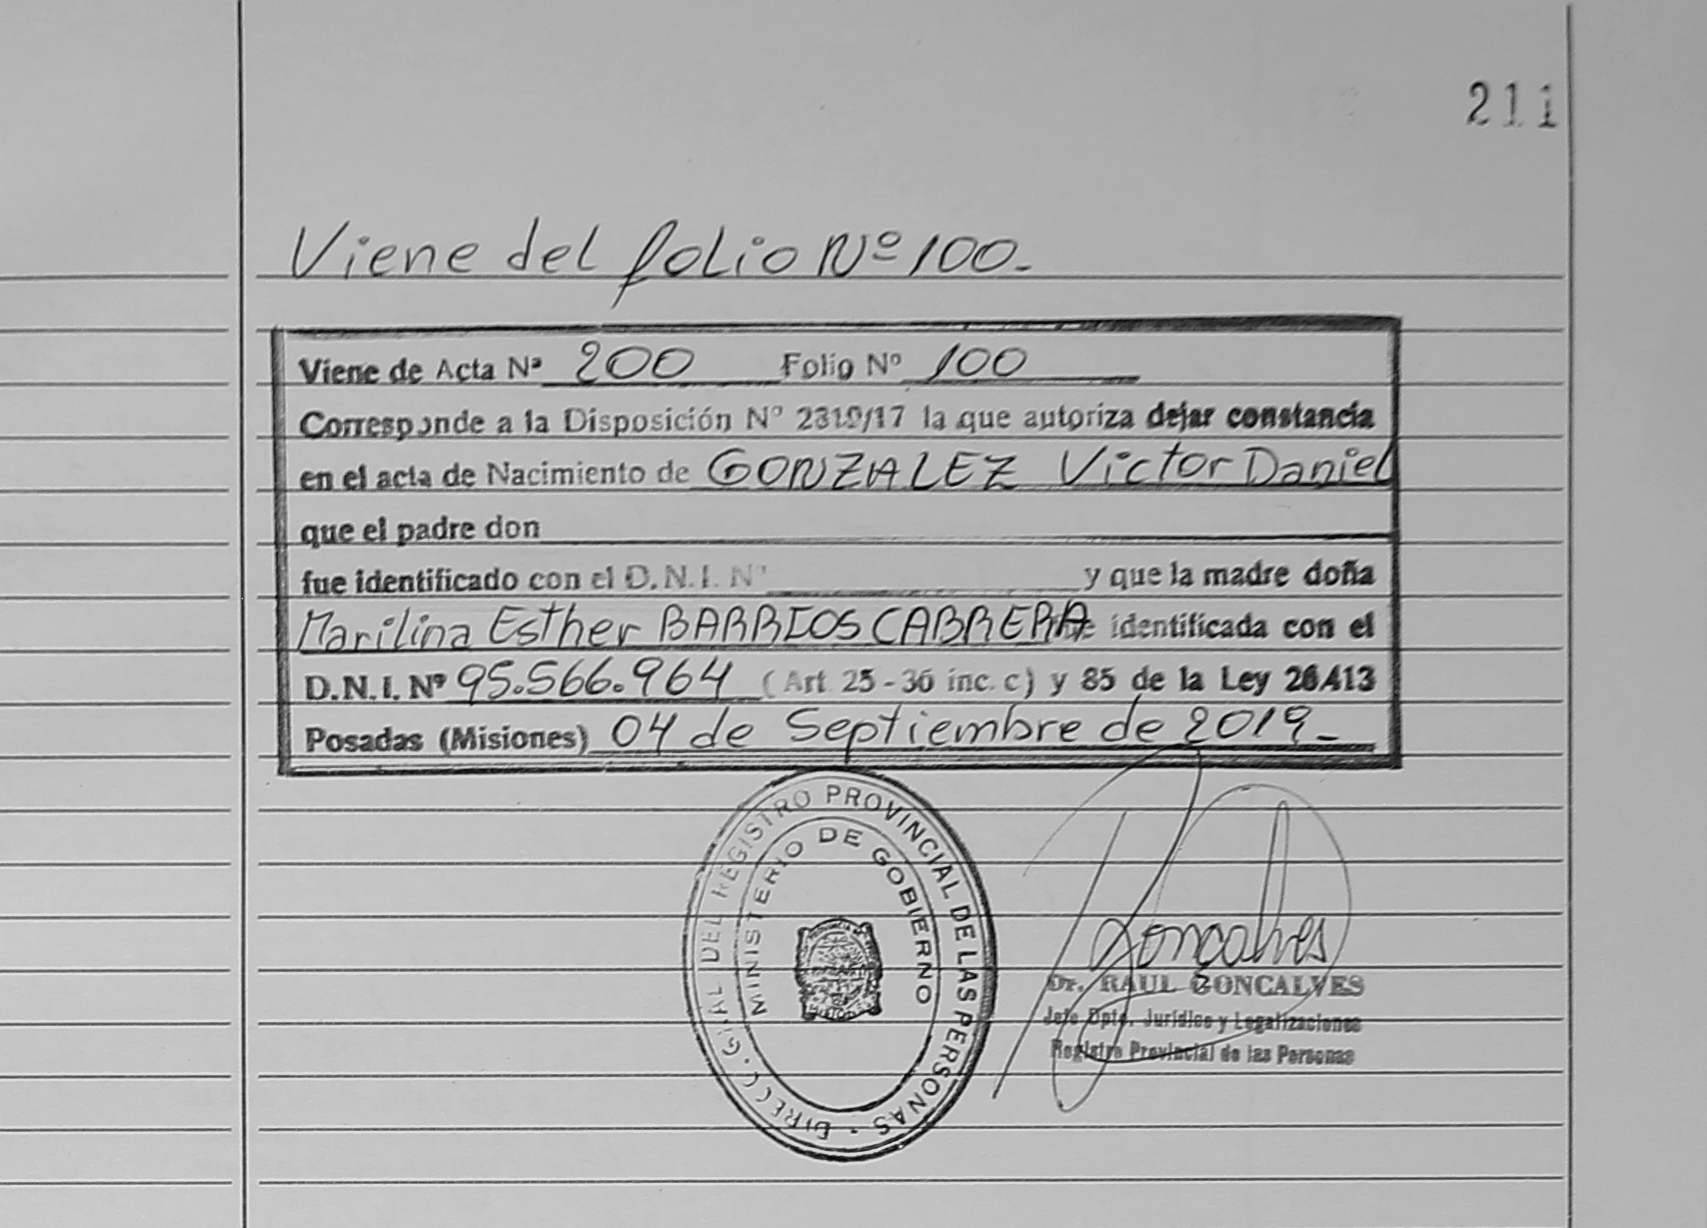 211
Viene del folio Nº 100.-
Viene de Acta Nª 200 Folio Nº 100
Corresponde a la Disposición Nº 2319/17 la que autoriza dejar constancia
en el acta de Nacimiento de GONZALEZ Victor Daniel
que el padre don
fue identificado con el D.N.I. Nº y que la madre doña
Marilina Esther BARRIOS CABRERA identificada con el
D.N.I. Nº 95.566.964 (Art 25 - 36 inc. c) y 85 de la Ley 26413
Posadas (Misiones) 04 de Septiembre de 2019.-
DIRECC. GRAL DEL REGISTRO PROVINCIAL DE LAS PERSONAS
MINISTERIO DE GOBIERNO
Goncalves
Dr. RAUL GONCALVES
Jefe Dpto. Jurídico y Legalizaciones
Registro Provincial de las Personas